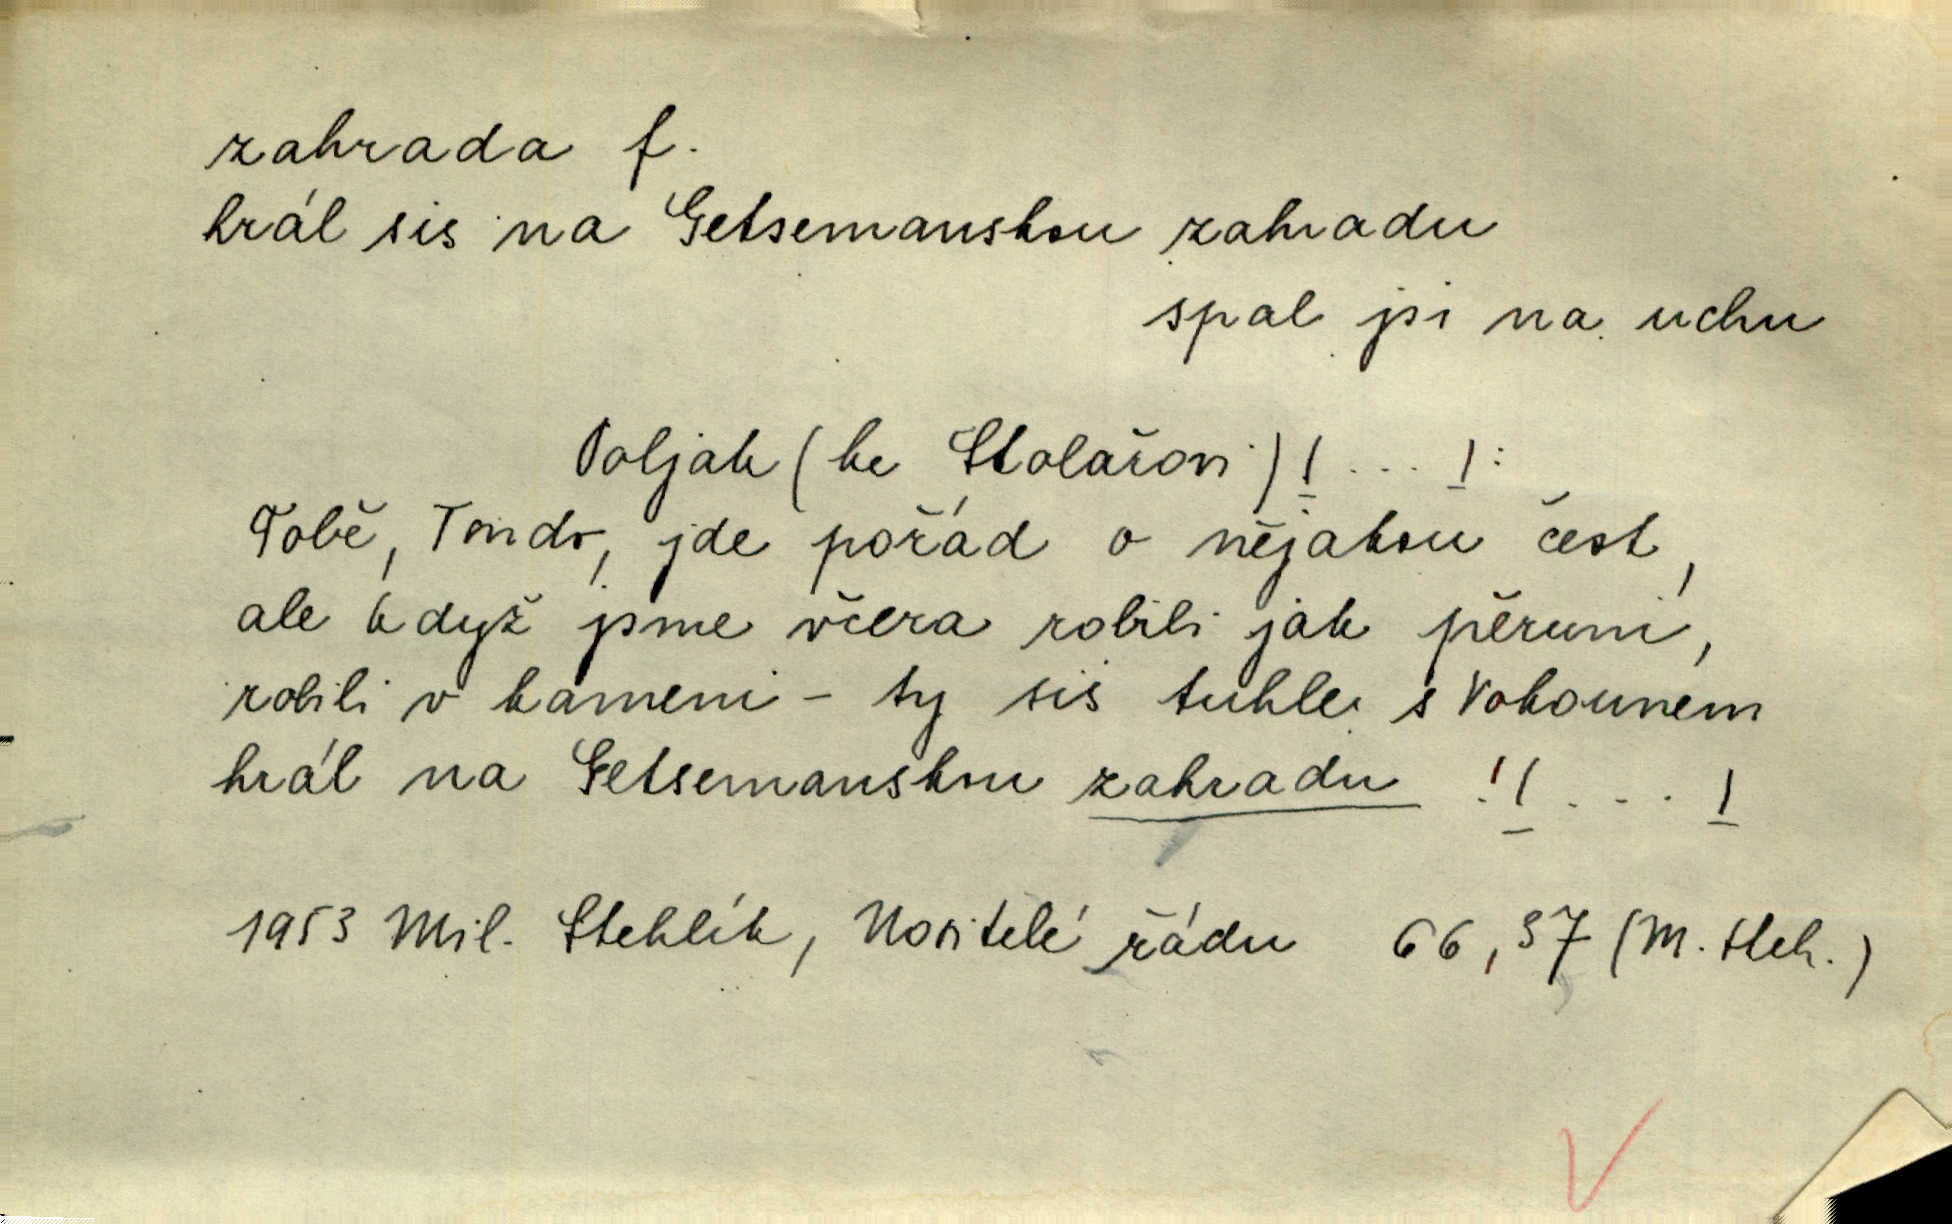 zahrada f.
hrál sis na Getsemanskou zahradu
spal jsi na uchu
Poljak (ke Stolařovi) | ... | :
Tobě, Tondo, jde pořád o nějakou čest,
ale když jsme včera robili jak pěruni,
robili v kameni – ty sis tuhle s Vokounem
hrál na Getsemanskou zahradu ! | ... |
1953 Mil. Stehlík, Nositelé řádu 66, 37 (M. Steh.)